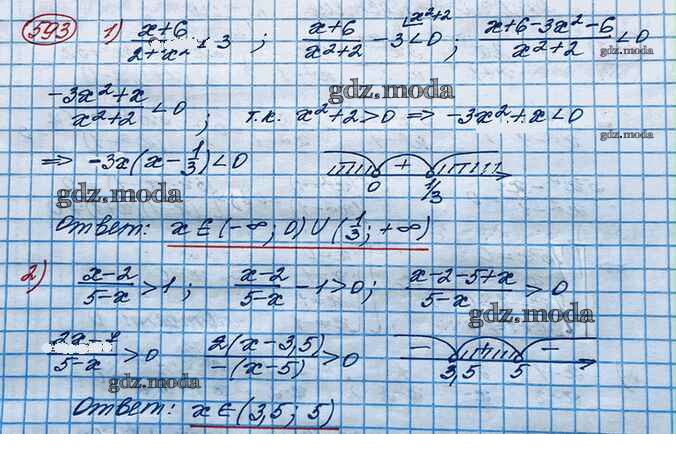 593 1) x+6 / 2+x² < 3 ; x+6 / x²+2 - 3 < 0 ; x+6-3x²-6 / x²+2 < 0
gdz.moda
gdz.moda
-3x²+x / x²+2 < 0 ; т.к. x²+2>0 => -3x²+x<0
gdz.moda
=> -3x(x - 1/3) < 0 + 0 1/3
gdz.moda
Ответ: x∈(-∞; 0)∪(1/3; +∞)
2) x-2 / 5-x > 1 ; x-2 / 5-x - 1 > 0 ; x-2-5+x / 5-x > 0
gdz.moda
5-x > 0 2(x-3,5) / -(x-5) > 0 - + - 3,5 5
gdz.moda
gdz.moda
Ответ: x∈(3,5; 5)